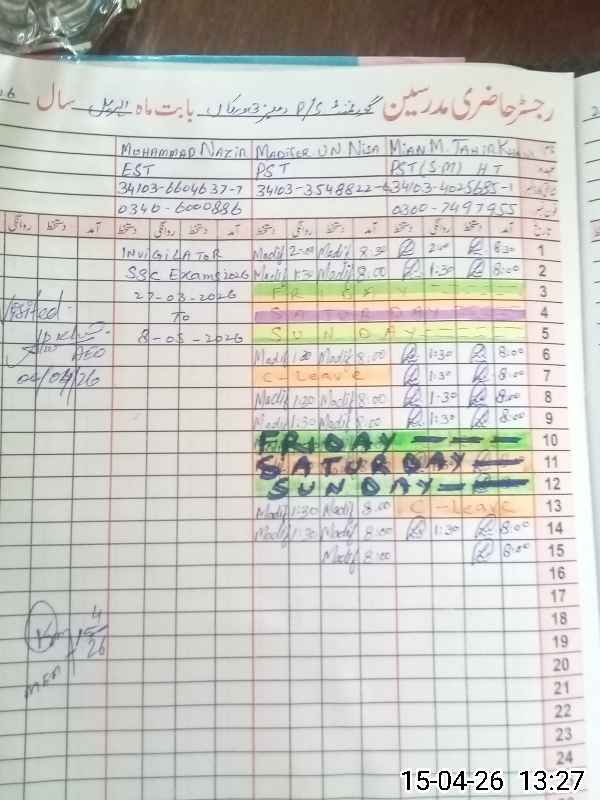 رجسٹر حاضری مدرسین گورنمنٹ P/S بابت ماہ اپریل سال
MUHAMMAD NAZIR MADIFER UN NISA MIAN M. TAHIR
EST PST PST (S.M) H T
34103-6604637-7 34103-3548822-6 34103-4025685-1
0340-6000886 0300-7497955
روانگی دستخط آمد دستخط روانگی دستخط آمد دستخط روانگی دستخط آمد تاریخ
INVIGILATOR Madif 2-00 Madif 8:30 2-00 8:30 1
SSC Exams 2026 Madif 1:30 Madif 8:00 1:30 8:00 2
27-03-2026 FRIDAY 3
To SATURDAY 4
8-05-2026 SUNDAY 5
Visited
AEO
04/04/26
Madif 1:30 Madif 8:00 1:30 8:00 6
C-Leave 1:30 8:00 7
Madif 1:30 Madif 8:00 1-30 8:00 8
Madif 1:30 Madif 8:00 1:30 8:00 9
FRIDAY - - - 10
SATURDAY - 11
SUNDAY - - 12
Madif 1:30 Madif 8:00 C-Leave 13
Madif 1:30 Madif 8:00 1:30 8:00 14
Madif 8:00 8:00 15
16
17
18
19
20
21
22
23
24
4
26
MEA
15-04-26 13:27